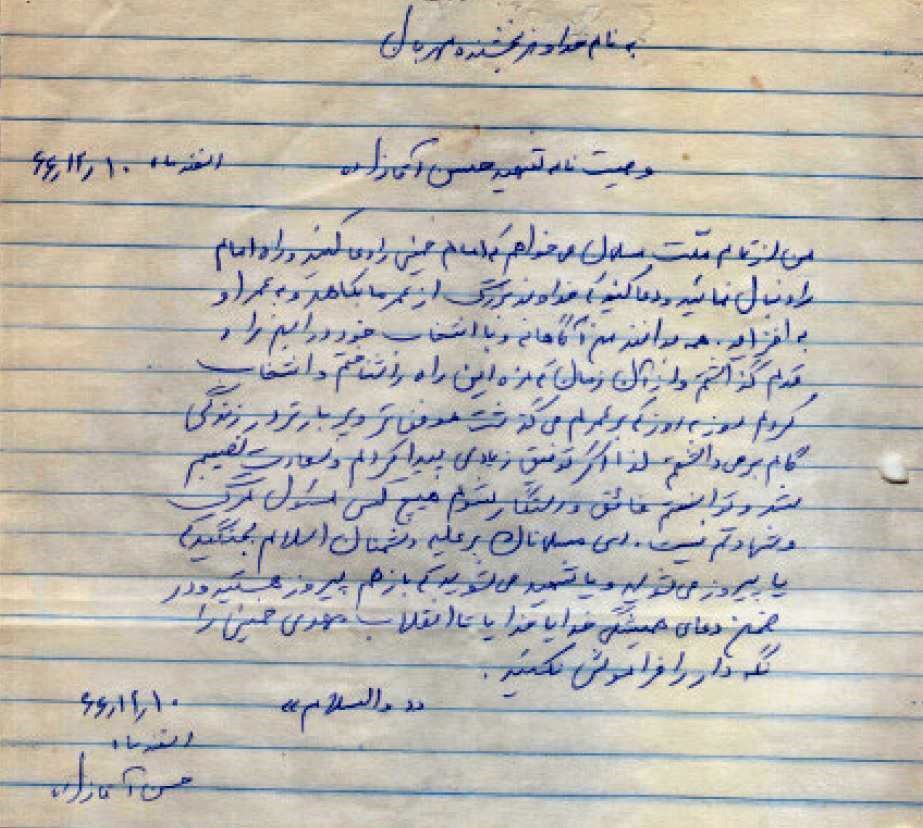 به نام خداوند بخشنده مهربان
وصیت نامه شهید حسن آقازاده اسفند ماه ۶۶٫۱۲٫۱۰
من از تمام ملت مسلمان می خواهم که امام خمینی را دعا کنند و راه امام
را دنبال نمائید و دعا کنید که خداوند بزرگ از عمر ما بکاهد و به عمر او
به افزاید. همه بدانند من آگاهانه و با انتخاب خود در این راه
قدم گذاشتم و از آن زمان که من این راه را شناختم و انتخاب
کردم روز به روز که بر عمرم می گذشت موفق تر و پر بارتر در زندگی
گام بر می داشتم، لذا اگر توفیق زیادی پیدا کردم و سعادت نصیبم
شد و توانستم عاشق و رستگار شوم هیچ کس مسئول مرگ
و شهادتم نیست. ای مسلمانان بر علیه دشمنان اسلام بجنگید که
یا پیروز می شوید و یا شهید می شوید که باز هم پیروز هستید و در
ضمن دعای همیشگی خدایا خدایا تا انقلاب مهدی خمینی را
نگه دار را فراموش نکنید.
«والسلام» ۶۶٫۱۲٫۱۰
اسفند ماه
حسن آقازاده